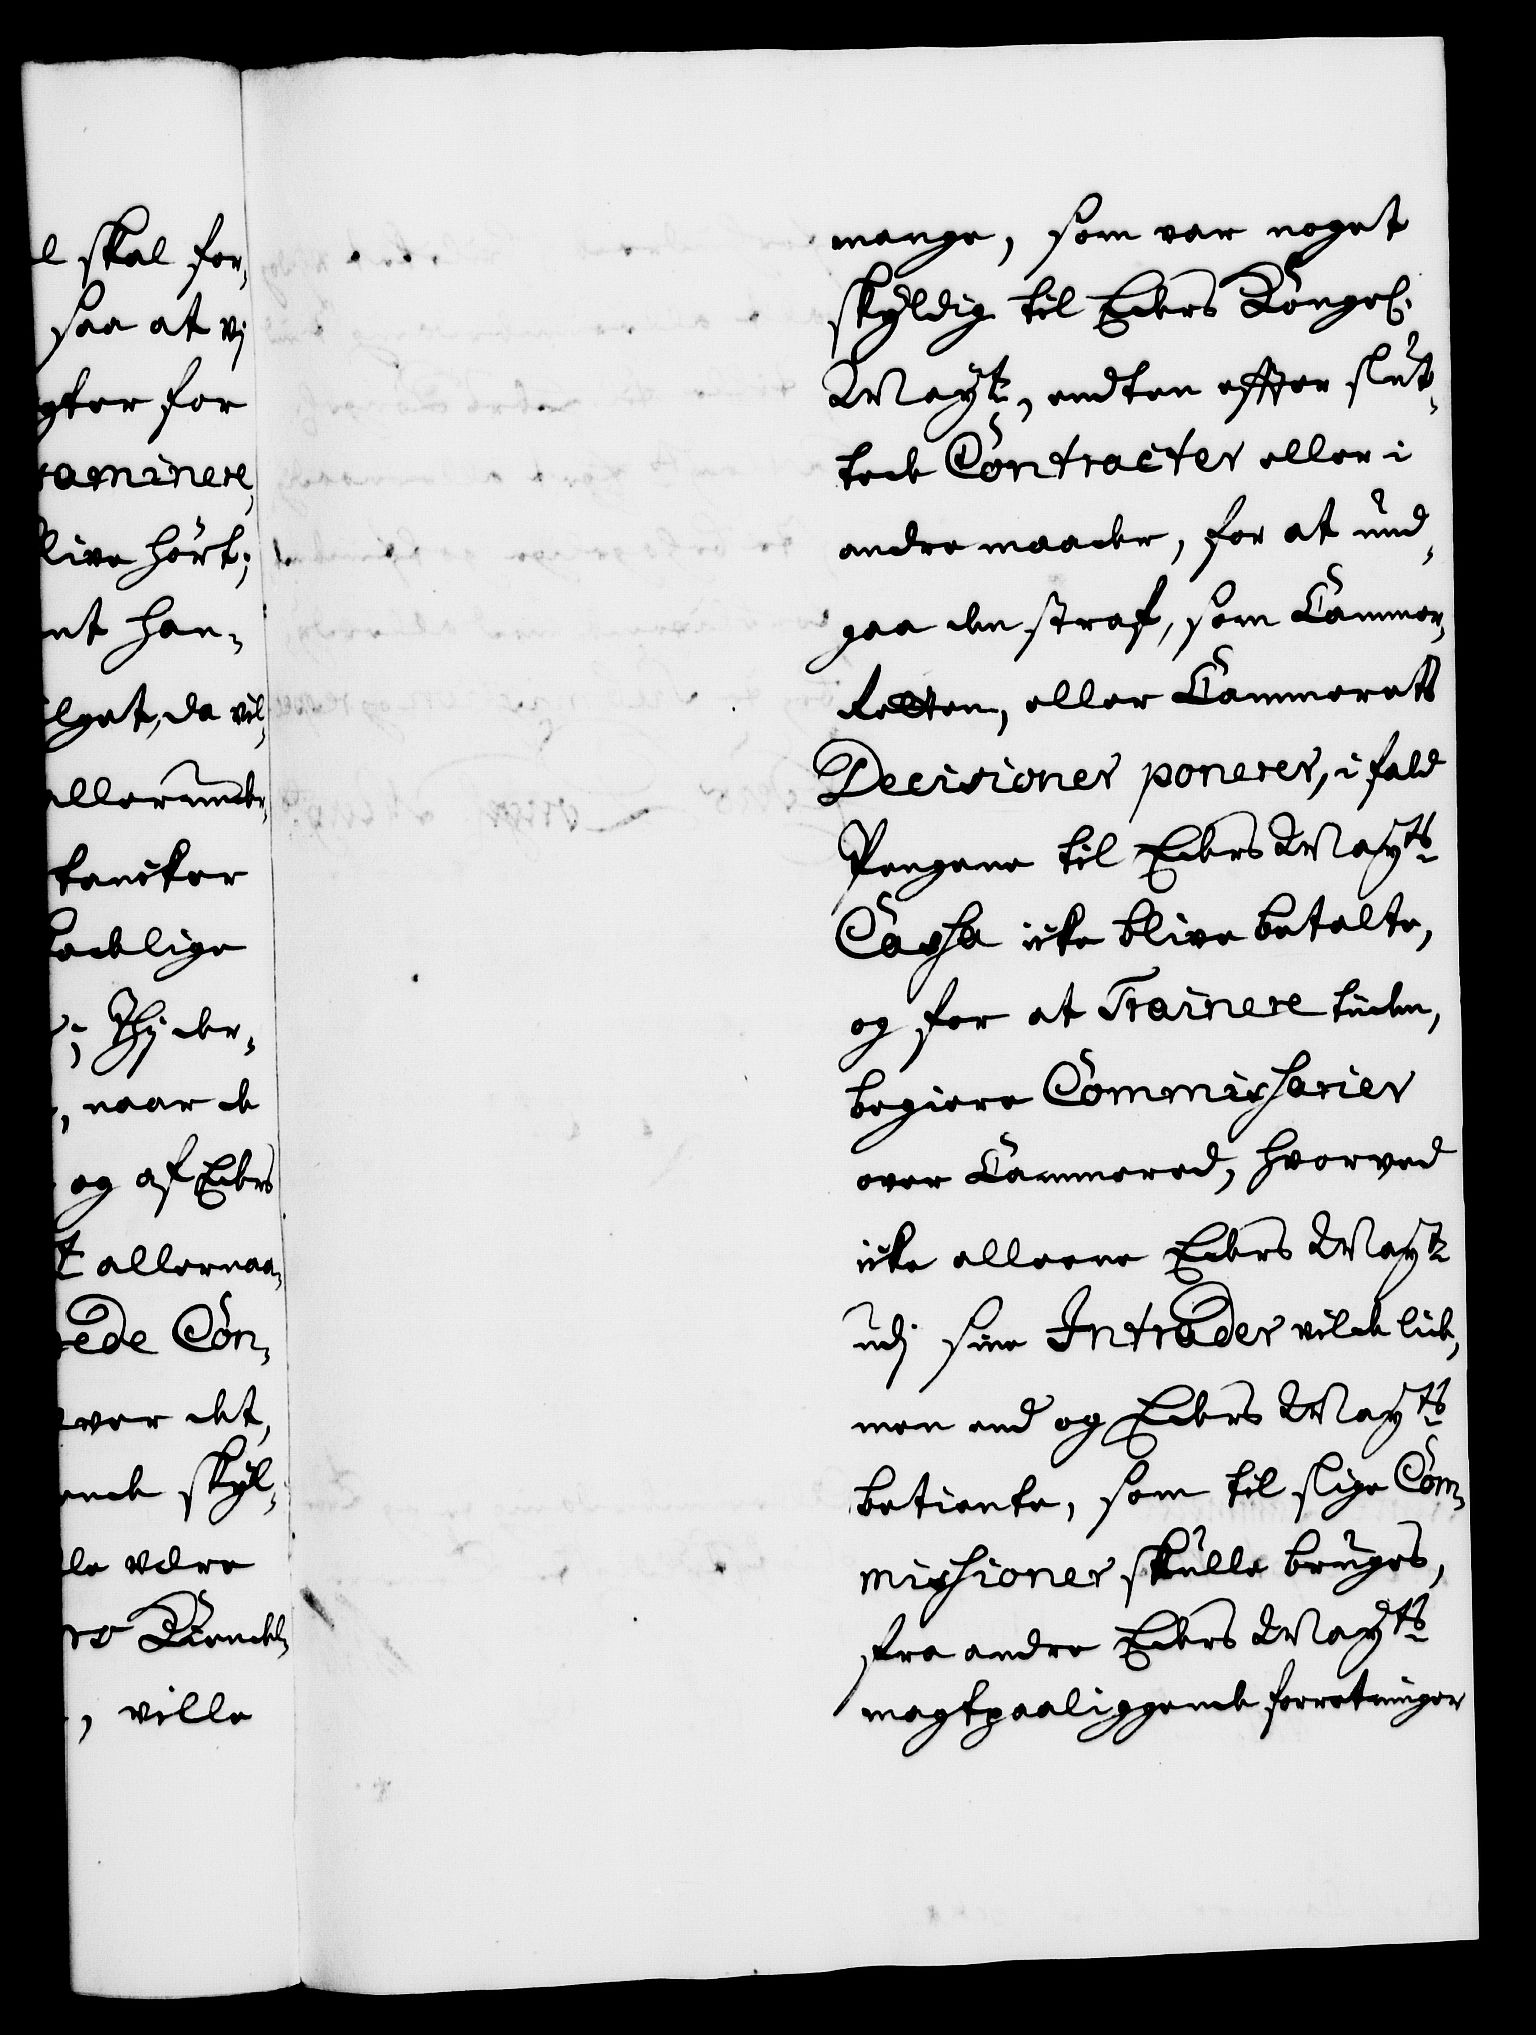 l skal for-
saa at vj
gter for
raminere,
blive hört;
nt han-
lget, da vil-
allerunder-
tancker
kadelige
; Thj der-
, naar de
og af Eders
t allernaa-
ede Con-
ver det,
ende skÿl-
le være
ro Kiendel-
, ville
mange, som var noget
skÿldig til Eders Kongel:
Maÿt, endten effter slut-
tede Contracter eller i
andre maader, for at und-
gaa den straf, som Cammer-
Retten, eller Cammerets
Decisioner ponerer, i fald
Pengene til Eders Maÿts
Cassa icke blive betalte,
og for at Trainere tiiden,
begiere Commissarier
over Cammered, hvorved
icke alleene Eders Maÿt
udj sine Intrader vilde liide,
men end og Eders Maÿts
betiente, som til slige Com-
missioner skulle bruges,
fra andre Eders Maÿts
magtpaaliggende forretninger